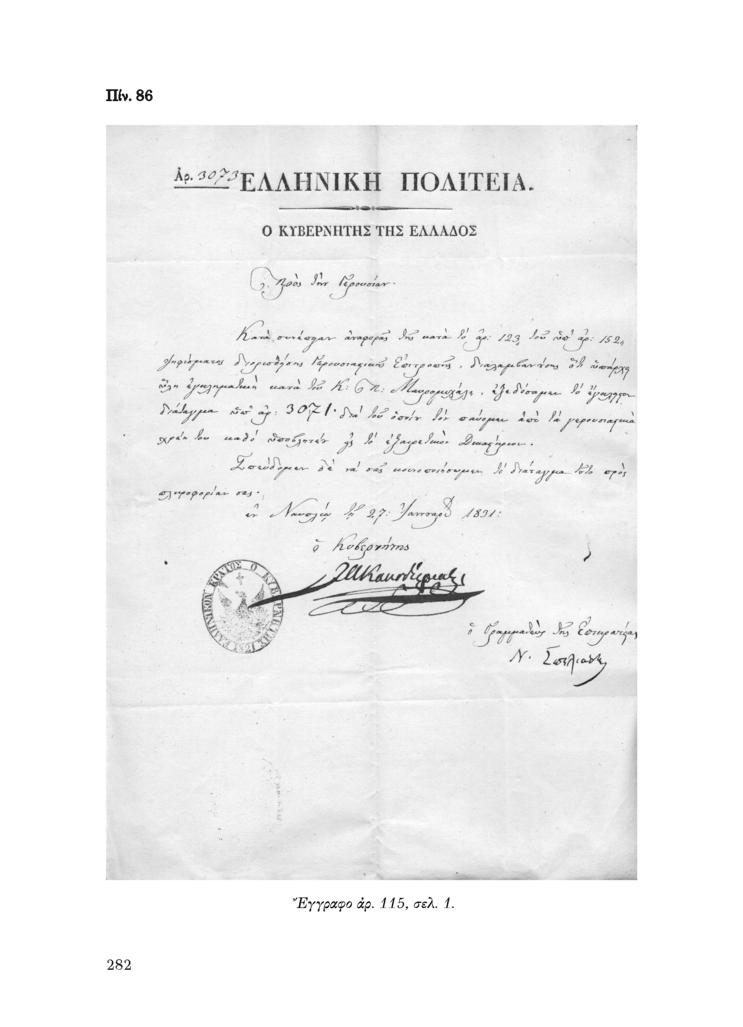 Πίν. 86
Ἀρ. 3073 ΕΛΛΗΝΙΚΗ ΠΟΛΙΤΕΙΑ.
Ο ΚΥΒΕΡΝΗΤΗΣ ΤΗΣ ΕΛΛΑΔΟΣ
Πρὸς τὴν Γερουσίαν.
Κατὰ συνέπειαν ἀναφορᾶς τῆς κατὰ τὸ ἀρ: 123 τοῦ ὑπ' ἀρ: 152
ψηφίσματος διορισθείσης Γερουσιακῆς Ἐπιτροπῆς, διαλαμβανούσης ὅτι ὑπάρχει
ὕλη ἐγκληματικὴ κατὰ τοῦ Κ: Π: Μαυρομιχάλη, ἐξεδώσαμεν τὸ ἔγκλειστον
διάταγμα ὑπ' ἀρ: 3071. διὰ τοῦ ὁποίου τὸν παύομεν ἀπὸ τὰ γερουσιακὰ
χρέη του καθὸ ὑποβλητέον εἰς τὸ ἐξαιρετικὸν Δικαστήριον.
Σπεύδομεν δὲ νὰ σᾶς κοινοποιήσωμεν τὸ διάταγμα τοῦτο πρὸς
πληροφορίαν σας.
ἐν Ναυπλίῳ τῇ 27: Ἰανουαρ 1831:
ὁ Κυβερνήτης
ΙΑΚαποδίστριας
ΕΛΛΗΝΙΚΟΝ ΚΡΑΤΟΣ Ο ΚΥΒΕΡΝΗΤΗΣ
ὁ Γραμματεὺς τῆς Ἐπικρατείας
Ν. Σπηλιάδης
Ἔγγραφο ἀρ. 115, σελ. 1.
282